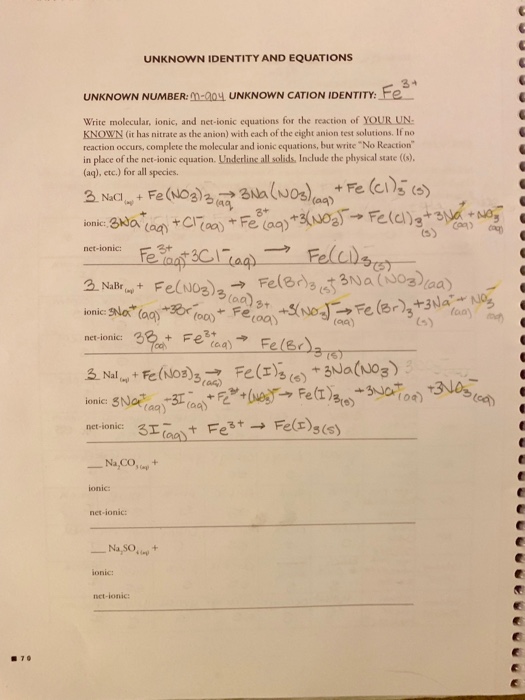 UNKNOWN IDENTITY AND EQUATIONS
UNKNOWN NUMBER: M-904 UNKNOWN CATION IDENTITY: Fe³⁺
Write molecular, ionic, and net-ionic equations for the reaction of YOUR UN-
KNOWN (it has nitrate as the anion) with each of the eight anion test solutions. If no
reaction occurs, complete the molecular and ionic equations, but write "No Reaction"
in place of the net-ionic equation. Underline all solids. Include the physical state ((s),
(aq), etc.) for all species.
3 NaCl(aq) + Fe(NO3)3(aq) → 3Na(NO3)(aq) + Fe(Cl)3(s)
ionic: 3Na⁺(aq) + Cl⁻(aq) + Fe³⁺(aq) + 3(NO3)⁻ → Fe(Cl)3(s) + 3Na⁺(aq) + NO3⁻(aq)
net-ionic: Fe³⁺(aq) + 3Cl⁻(aq) → Fe(Cl)3(s)
3 NaBr(aq) + Fe(NO3)3(aq) → Fe(Br)3(s) + 3Na(NO3)(aq)
ionic: 3Na⁺(aq) + 3Br⁻(aq) + Fe³⁺(aq) + 3(NO3)⁻(aq) → Fe(Br)3(s) + 3Na⁺(aq) + NO3⁻(aq)
net-ionic: 3Br⁻(aq) + Fe³⁺(aq) → Fe(Br)3(s)
3 NaI(aq) + Fe(NO3)3(aq) → Fe(I)3(s) + 3Na(NO3)
ionic: 3Na⁺(aq) + 3I⁻(aq) + Fe³⁺ + (NO3)⁻ → Fe(I)3(s) + 3Na⁺(aq) + 3NO3⁻(aq)
net-ionic: 3I⁻(aq) + Fe³⁺ → Fe(I)3(s)
Na₂CO₃(aq) +
ionic:
net-ionic:
Na₂SO₄(aq) +
ionic:
net-ionic:
70